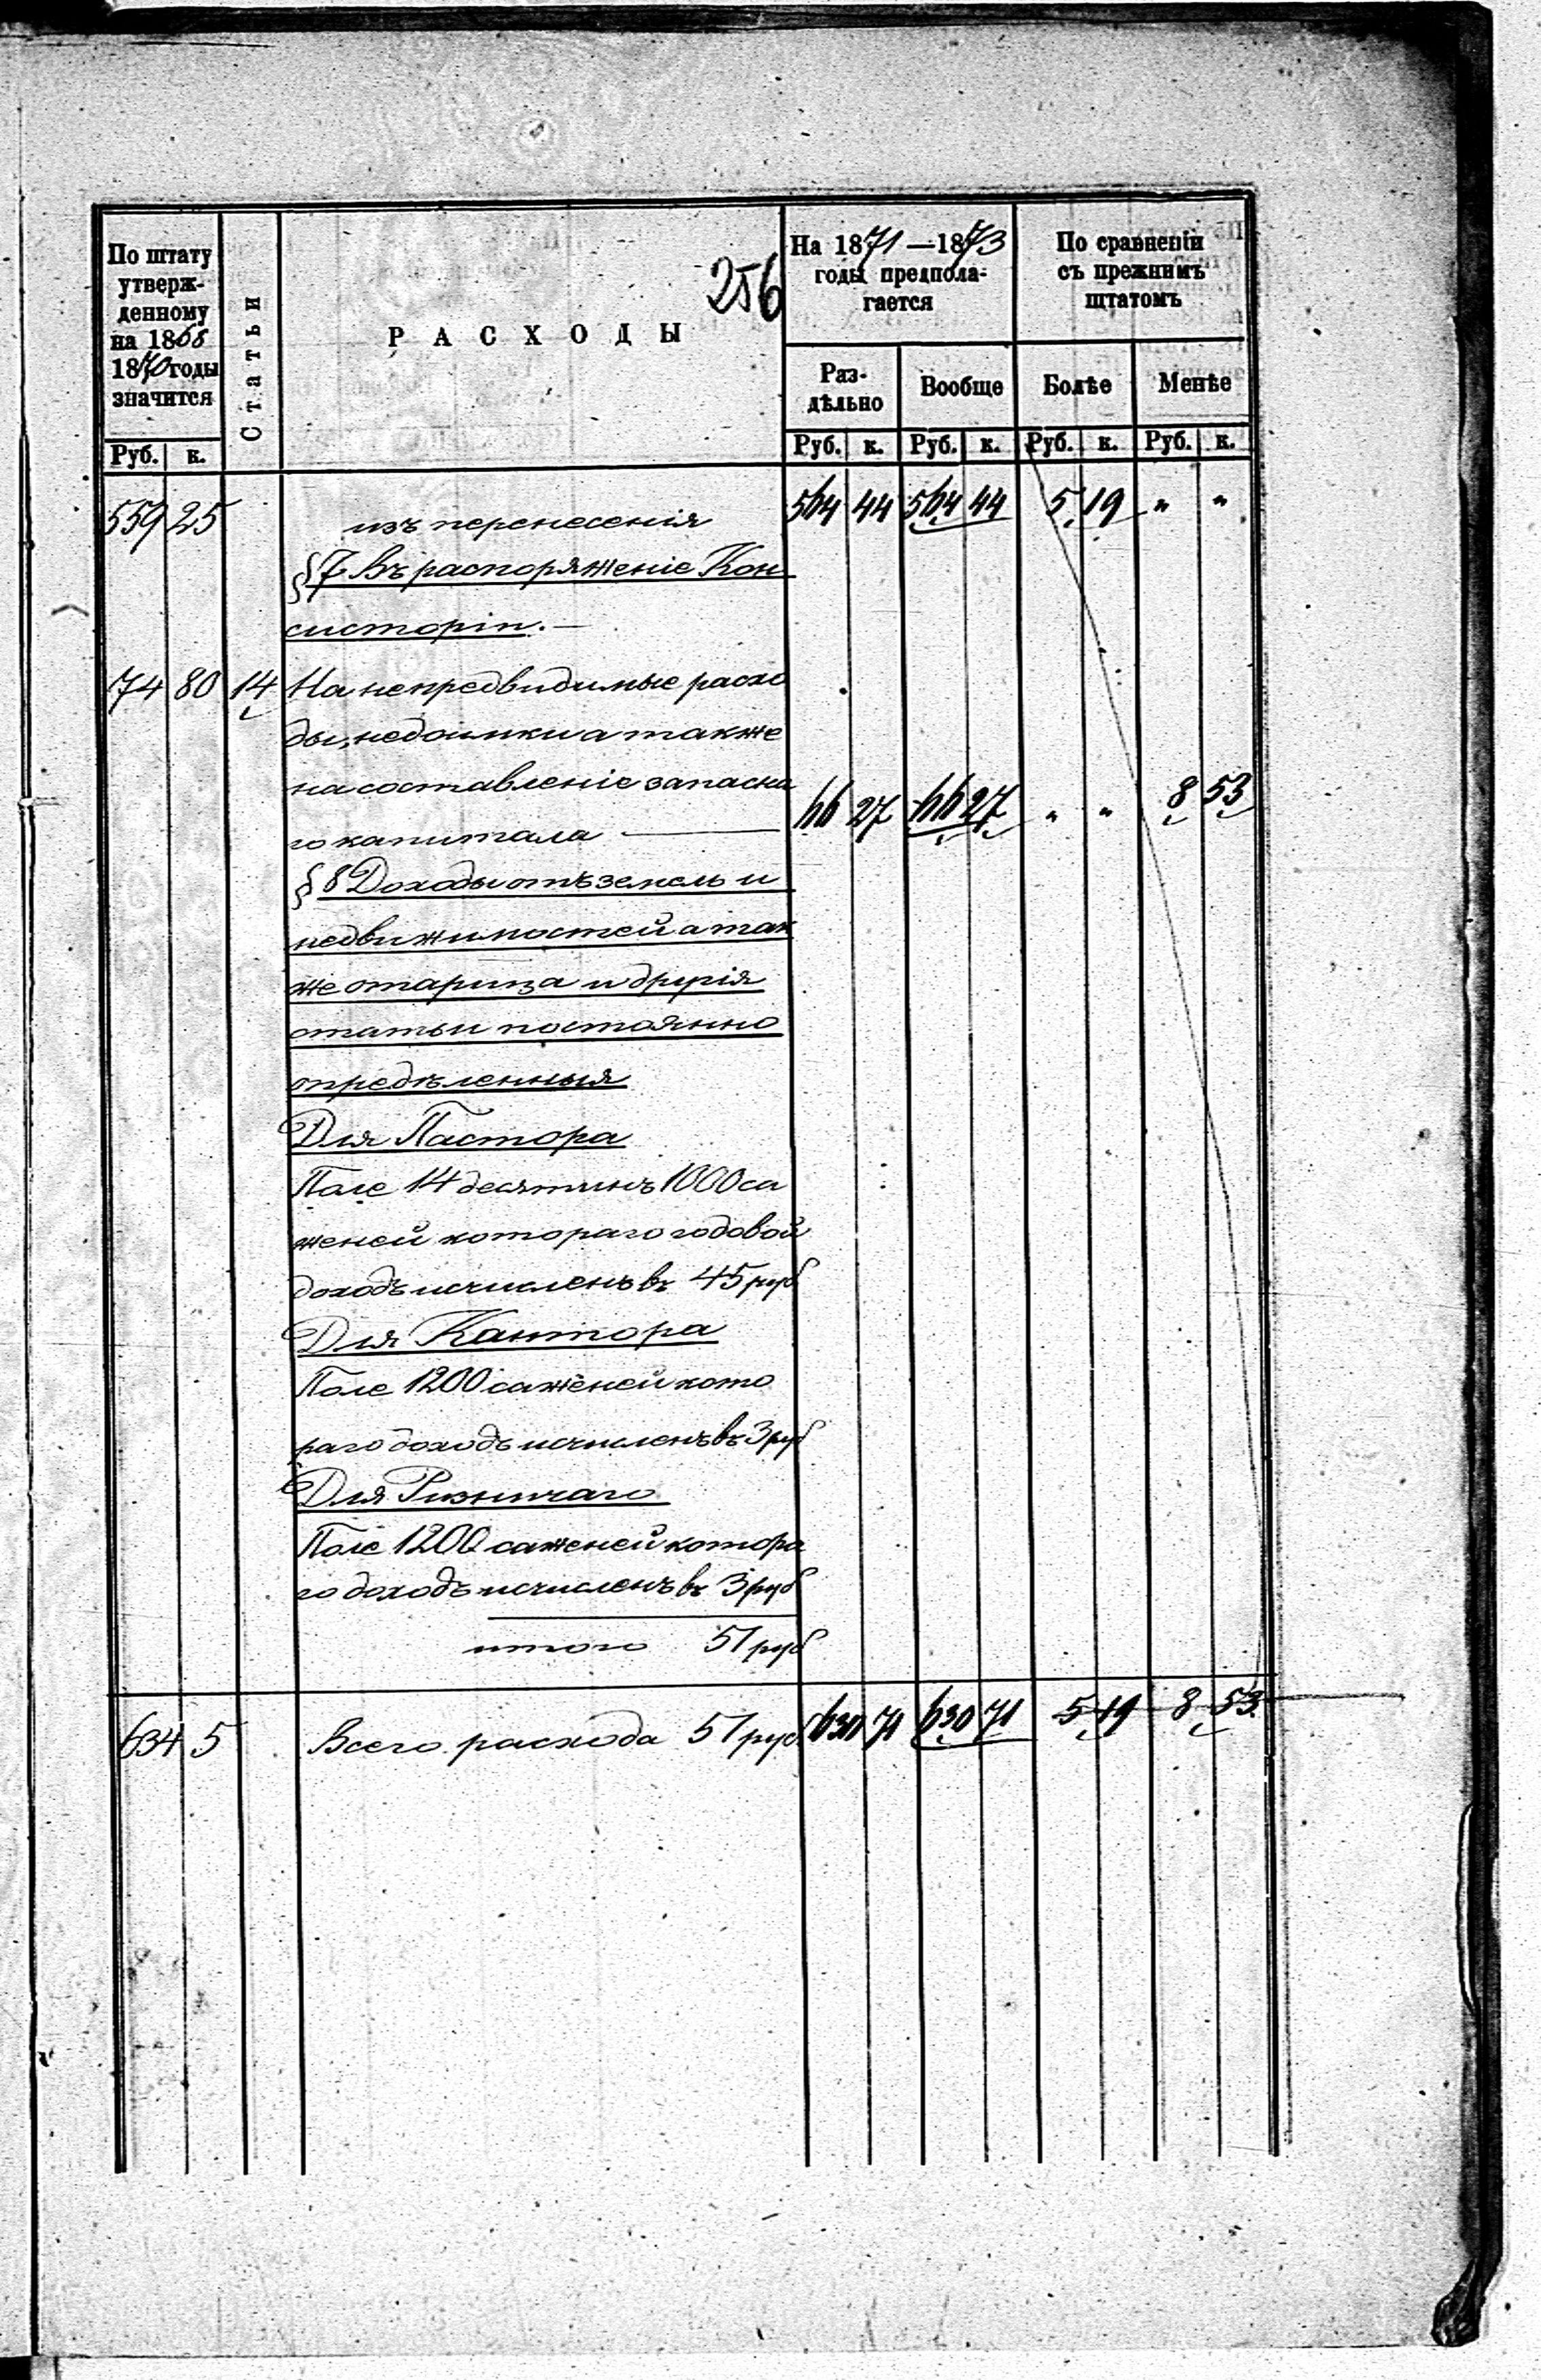 256
По штату утверж-денному на 1868 1870 годы значится
Статьи
РАСХОДЫ
На 1871—1873 годы предпола-гается
По сравненіи съ прежнимъ штатомъ
Раз-дѣльно Вообще Болѣе Менѣе
Руб. к. Руб. к. Руб. к. Руб. к. Руб. к.
559 25 изъ перенесенія 564 44 564 44 5 19 " "
§ 7 Въ распоряженіе Кон
систоріи.—
74 80 14 На непредвидимые расхо
ды, недоимки а также
на составленіе запасна
го капитала — 66 27 66 27 " " 8 53
§ 8 Доходы отъ земель и
недвижимостей а так
же отариза и другія
статьи постоянно
опредѣленныя
Для Пастора
Поле 14 десятинъ 1000 са
женей котораго годовой
доходъ исчисленъ въ 45 руб
Для Кантора
Поле 1200 саженей кото
раго доходъ исчисленъ въ 3 руб
Для Ризничаго
Поле 1200 саженей котора
го доходъ исчисленъ въ 3 руб
итого 51 руб
634 5 Всего расхода 51 руб. 630 71 630 71 5 19 8 53